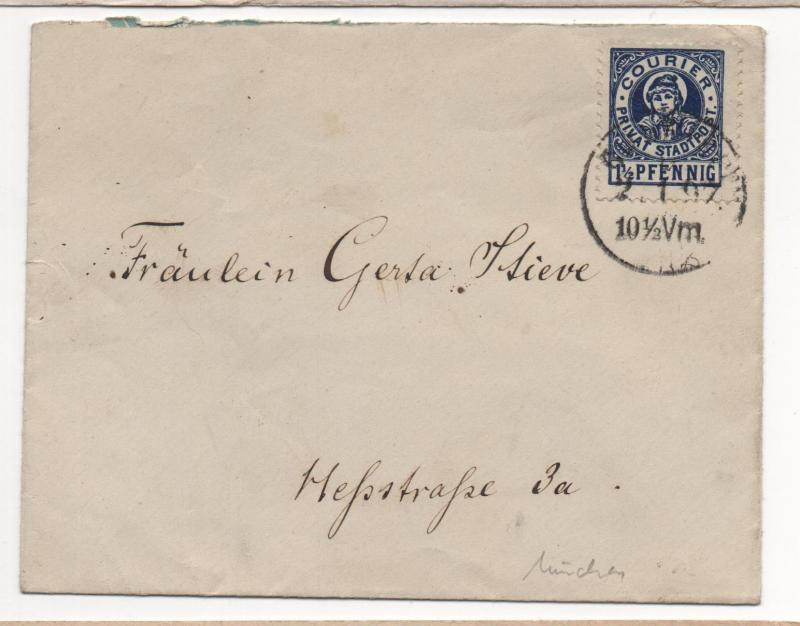 · COURIER ·
PRIVAT STADTPOST.
1½ PFENNIG
2 1 97.
10 ½ Vm.
Fräulein Gersa Stieve
Heßstraße 3a.
München